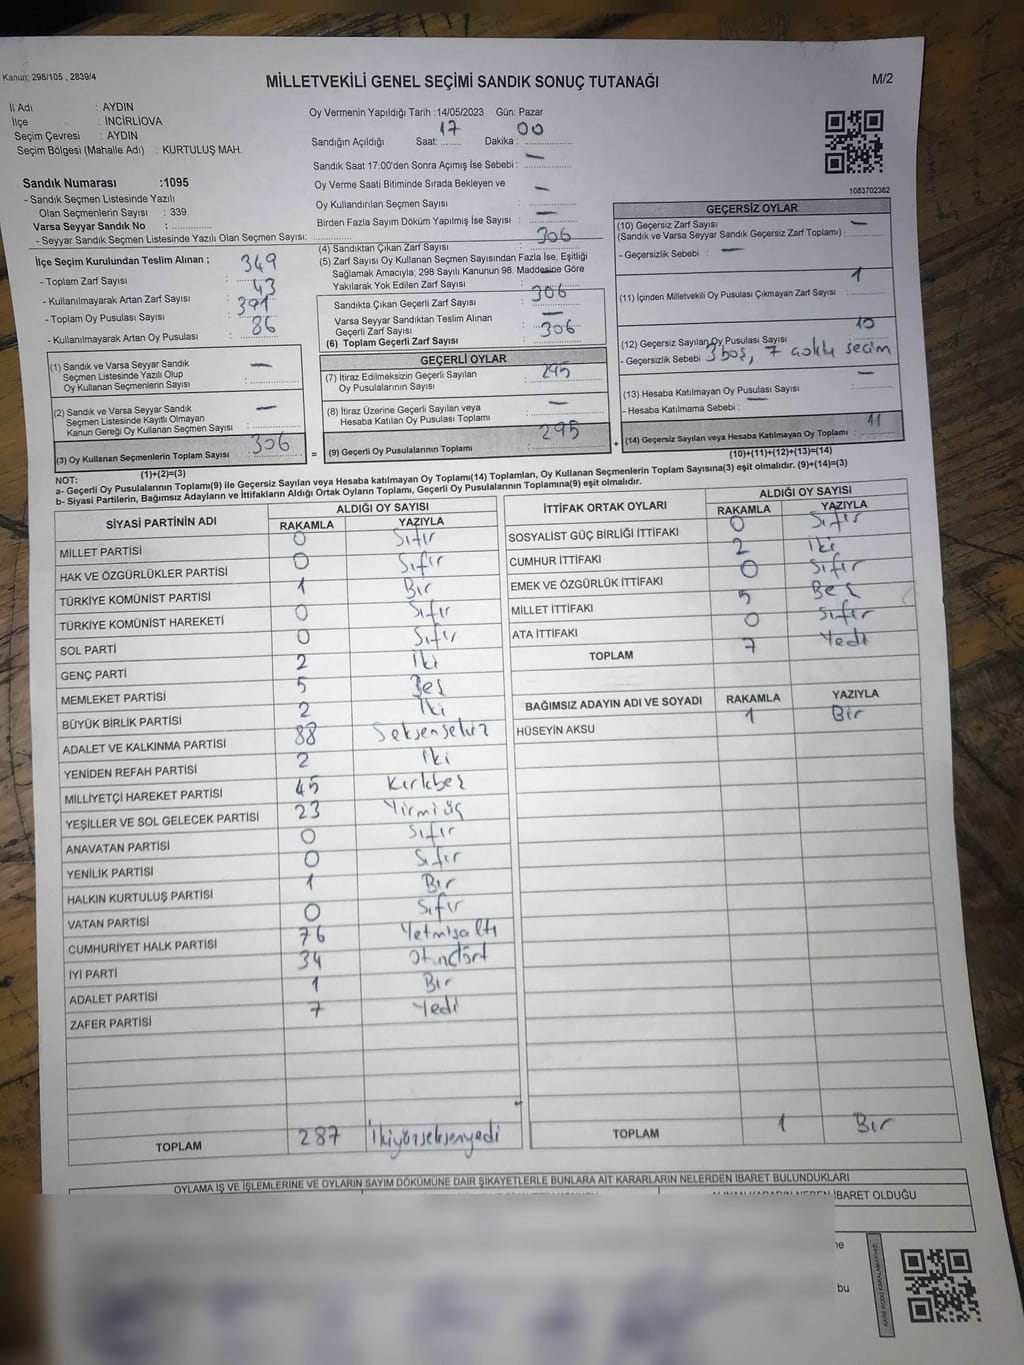 Kanun: 298/105 , 2839/4
MİLLETVEKİLİ GENEL SEÇİMİ SANDIK SONUÇ TUTANAĞI
M/2
İl Adı : AYDIN
İlçe : İNCİRLİOVA
Seçim Çevresi : AYDIN
Seçim Bölgesi (Mahalle Adı) : KURTULUŞ MAH.
Sandık Numarası :1095
- Sandık Seçmen Listesinde Yazılı
Olan Seçmenlerin Sayısı : 339
Varsa Seyyar Sandık No :
- Seyyar Sandık Seçmen Listesinde Yazılı Olan Seçmen Sayısı:
Oy Vermenin Yapıldığı Tarih :14/05/2023 Gün: Pazar
Sandığın Açıldığı Saat: 17 Dakika : 00
Sandık Saat 17:00'den Sonra Açımış İse Sebebi : —
Oy Verme Saati Bitiminde Sırada Bekleyen ve
Oy Kullandırılan Seçmen Sayısı : —
Birden Fazla Sayım Döküm Yapılmış İse Sayısı : —
1083702382
İlçe Seçim Kurulundan Teslim Alınan ;
- Toplam Zarf Sayısı : 349
- Kullanılmayarak Artan Zarf Sayısı : 43
- Toplam Oy Pusulası Sayısı : 391
- Kullanılmayarak Artan Oy Pusulası : 86
(1) Sandık ve Varsa Seyyar Sandık
Seçmen Listesinde Yazılı Olup
Oy Kullanan Seçmenlerin Sayısı : —
(2) Sandık ve Varsa Seyyar Sandık
Seçmen Listesinde Kayıtlı Olmayan
Kanun Gereği Oy Kullanan Seçmen Sayısı : —
(3) Oy Kullanan Seçmenlerin Toplam Sayısı : 306
(1)+(2)=(3)
(4) Sandıktan Çıkan Zarf Sayısı : 306
(5) Zarf Sayısı Oy Kullanan Seçmen Sayısından Fazla İse, Eşitliği
Sağlamak Amacıyla; 298 Sayılı Kanunun 98. Maddesine Göre
Yakılarak Yok Edilen Zarf Sayısı : —
Sandıkta Çıkan Geçerli Zarf Sayısı : 306
Varsa Seyyar Sandıktan Teslim Alınan
Geçerli Zarf Sayısı : —
(6) Toplam Geçerli Zarf Sayısı : 306
GEÇERLİ OYLAR
(7) İtiraz Edilmeksizin Geçerli Sayılan
Oy Pusulalarının Sayısı : 295
(8) İtiraz Üzerine Geçerli Sayılan veya
Hesaba Katılan Oy Pusulası Toplamı : —
= (9) Geçerli Oy Pusulalarının Toplamı : 295 +
GEÇERSİZ OYLAR
(10) Geçersiz Zarf Sayısı
(Sandık ve Varsa Seyyar Sandık Geçersiz Zarf Toplamı) : —
- Geçersizlik Sebebi : —
(11) İçinden Milletvekili Oy Pusulası Çıkmayan Zarf Sayısı : 1
(12) Geçersiz Sayılan Oy Pusulası Sayısı : 10
- Geçersizlik Sebebi : 3 boş, 7 çoklu seçim
(13) Hesaba Katılmayan Oy Pusulası Sayısı : —
- Hesaba Katılmama Sebebi : —
(14) Geçersiz Sayılan veya Hesaba Katılmayan Oy Toplamı : 11
(10)+(11)+(12)+(13)=(14)
NOT:
a- Geçerli Oy Pusulalarının Toplamı(9) ile Geçersiz Sayılan veya Hesaba katılmayan Oy Toplamı(14) Toplamları, Oy Kullanan Seçmenlerin Toplam Sayısına(3) eşit olmalıdır. (9)+(14)=(3)
b- Siyasi Partilerin, Bağımsız Adayların ve İttifakların Aldığı Ortak Oyların Toplamı, Geçerli Oy Pusulalarının Toplamına(9) eşit olmalıdır.
SİYASİ PARTİNİN ADI ALDIĞI OY SAYISI
RAKAMLA YAZIYLA
MİLLET PARTİSİ 0 Sıfır
HAK VE ÖZGÜRLÜKLER PARTİSİ 0 Sıfır
TÜRKİYE KOMÜNİST PARTİSİ 1 Bir
TÜRKİYE KOMÜNİST HAREKETİ 0 Sıfır
SOL PARTİ 0 Sıfır
GENÇ PARTİ 2 İki
MEMLEKET PARTİSİ 5 Beş
BÜYÜK BİRLİK PARTİSİ 2 İki
ADALET VE KALKINMA PARTİSİ 88 Seksensekiz
YENİDEN REFAH PARTİSİ 2 İki
MİLLİYETÇİ HAREKET PARTİSİ 45 Kırkbeş
YEŞİLLER VE SOL GELECEK PARTİSİ 23 Yirmiüç
ANAVATAN PARTİSİ 0 Sıfır
YENİLİK PARTİSİ 0 Sıfır
HALKIN KURTULUŞ PARTİSİ 1 Bir
VATAN PARTİSİ 0 Sıfır
CUMHURİYET HALK PARTİSİ 76 Yetmişaltı
İYİ PARTİ 34 Otuzdört
ADALET PARTİSİ 1 Bir
ZAFER PARTİSİ 7 Yedi
TOPLAM 287 İkiyüzseksenyedi
İTTİFAK ORTAK OYLARI ALDIĞI OY SAYISI
RAKAMLA YAZIYLA
SOSYALİST GÜÇ BİRLİĞİ İTTİFAKI 0 Sıfır
CUMHUR İTTİFAKI 2 İki
EMEK VE ÖZGÜRLÜK İTTİFAKI 0 Sıfır
MİLLET İTTİFAKI 5 Beş
ATA İTTİFAKI 0 Sıfır
TOPLAM 7 Yedi
BAĞIMSIZ ADAYIN ADI VE SOYADI RAKAMLA YAZIYLA
HÜSEYİN AKSU 1 Bir
TOPLAM 1 Bir
OYLAMA İŞ VE İŞLEMLERİNE VE OYLARIN SAYIM DÖKÜMÜNE DAİR ŞİKAYETLERLE BUNLARA AİT KARARLARIN NELERDEN İBARET BULUNDUKLARI
İBARET OLDUĞU
bu
KARE KODU KARALAMAYINIZ!